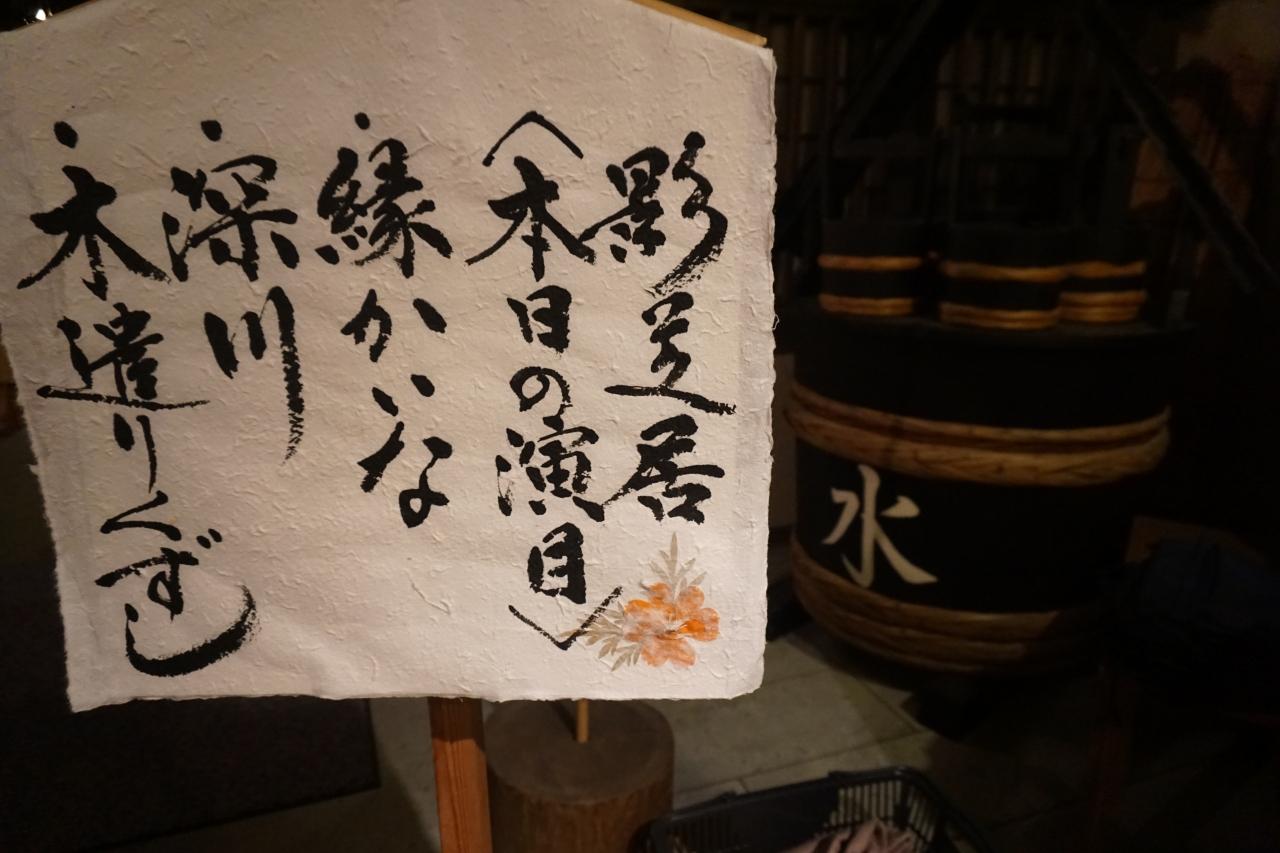 影芝居
〈本日の演目〉
・縁かいな
・深川
・木遣りくずし
水